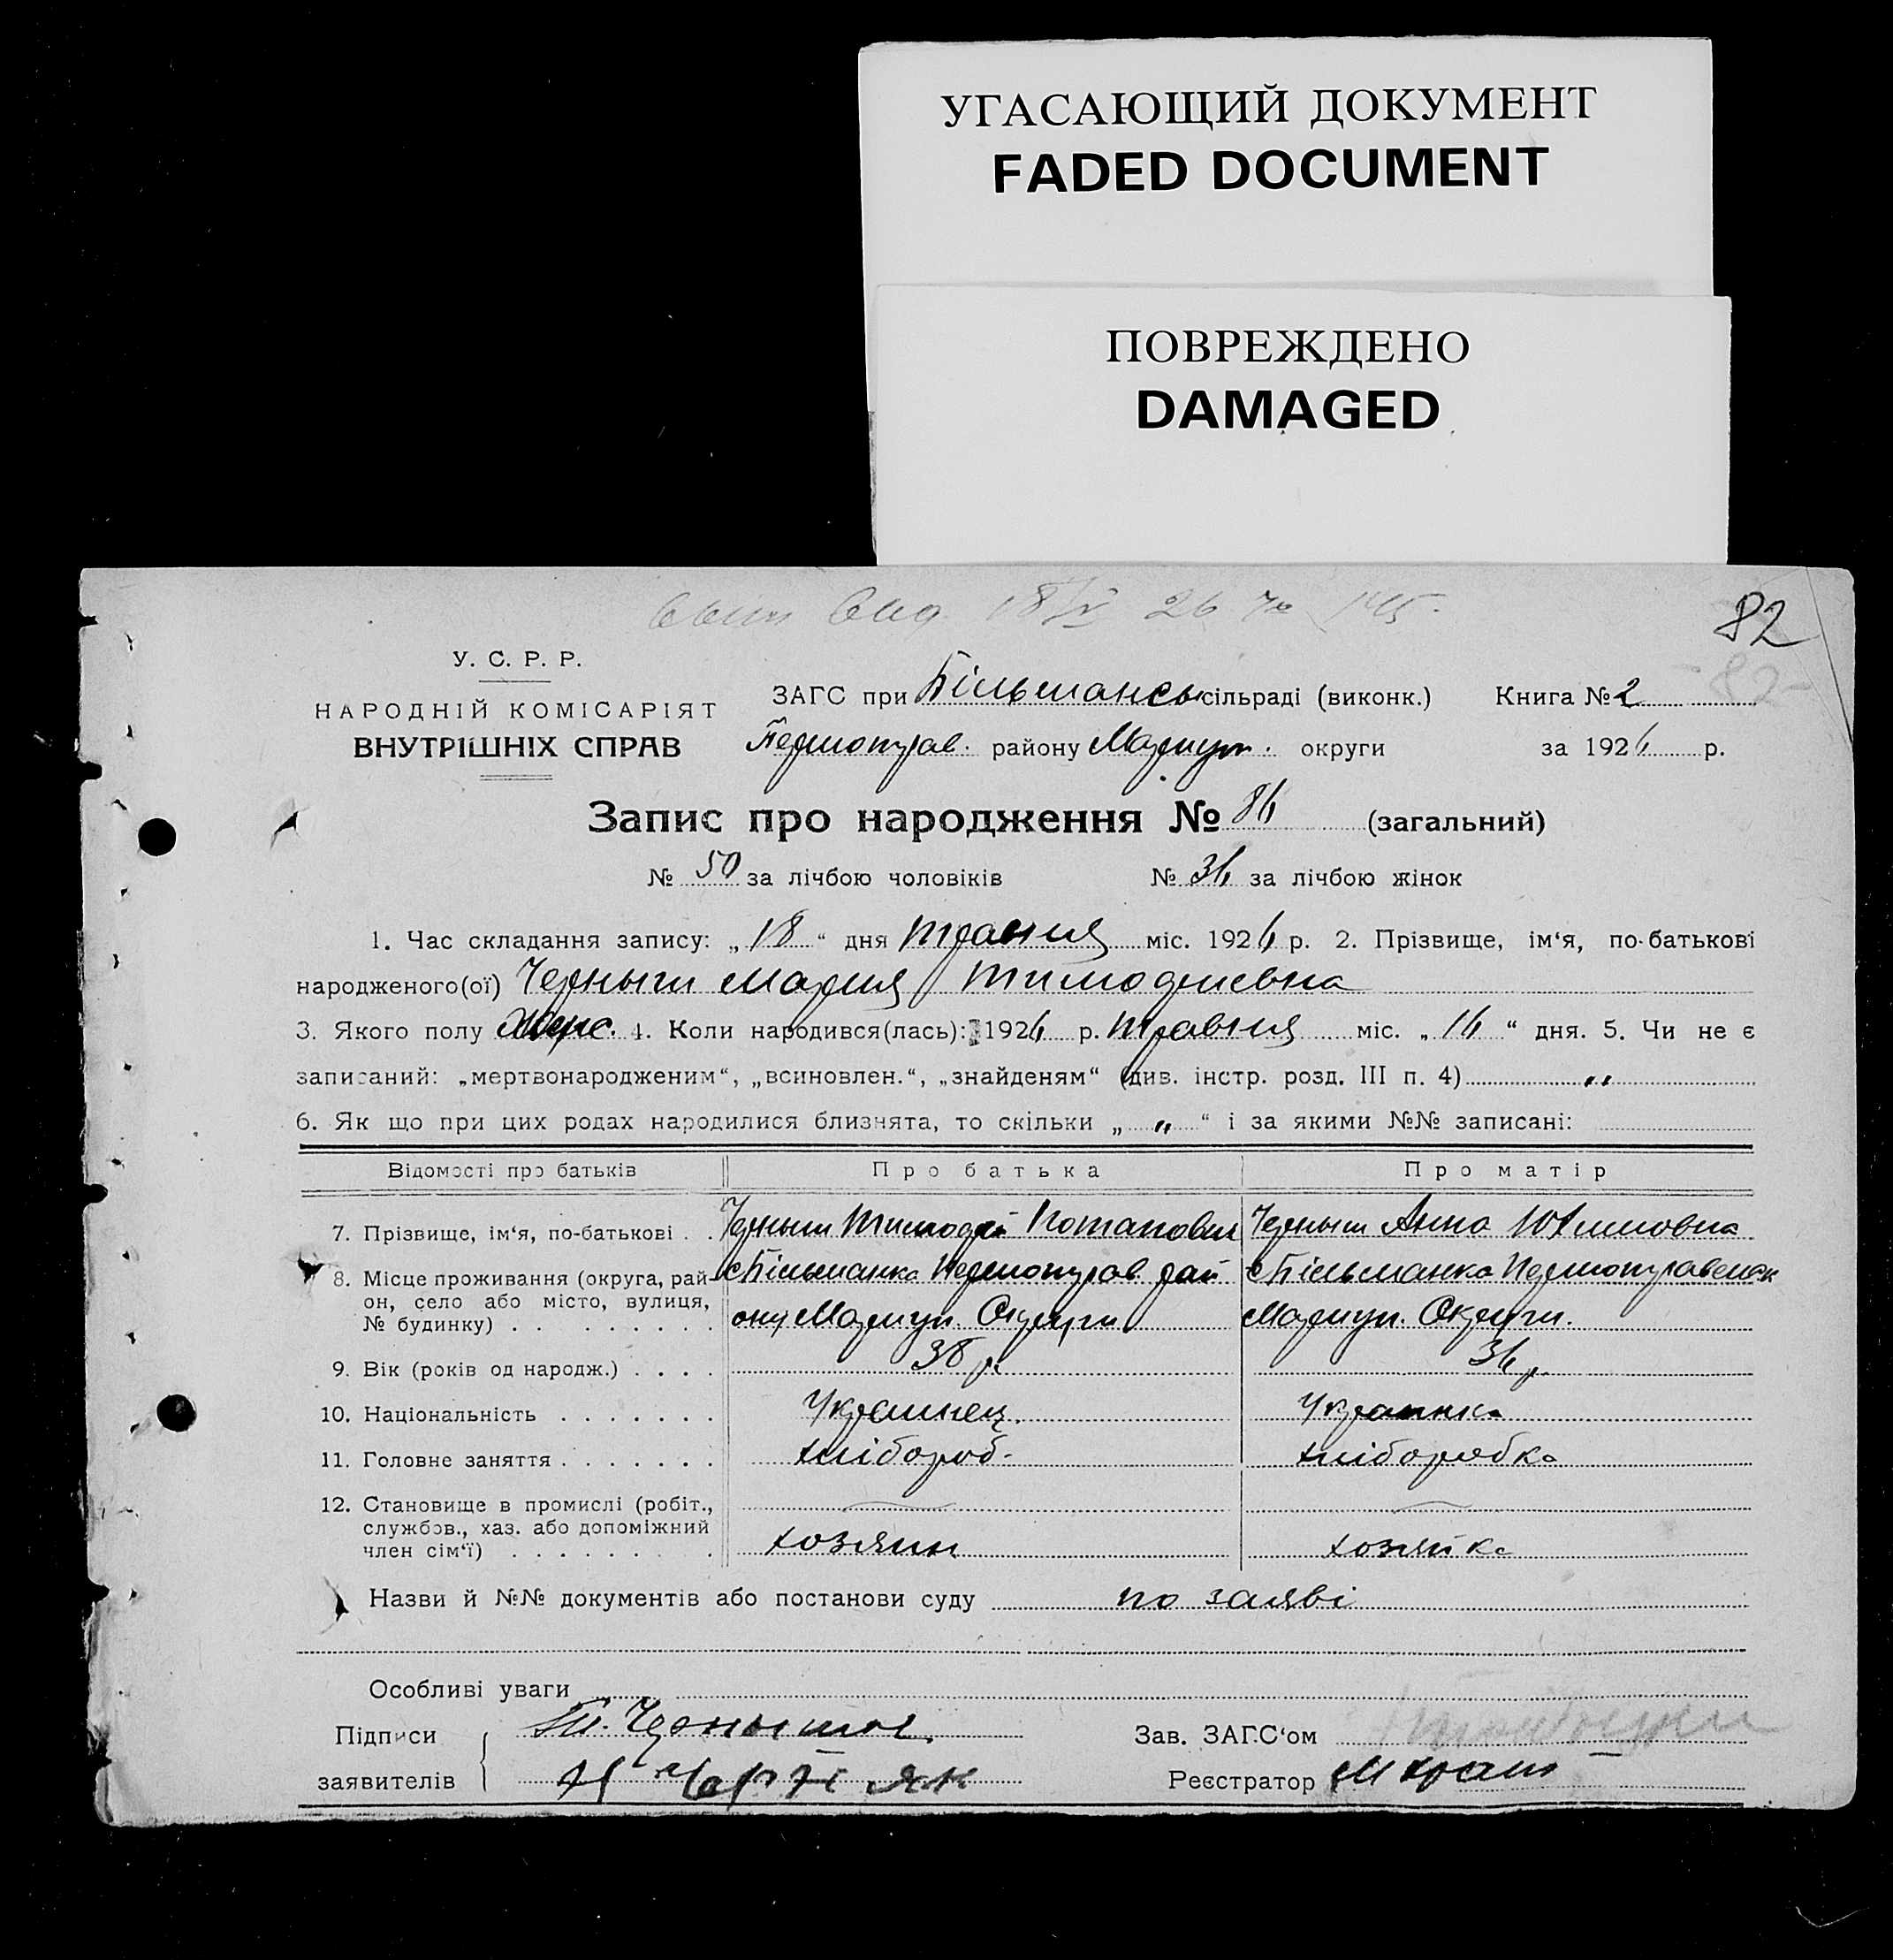 УГАСАЮЩИЙ ДОКУМЕНТ
FADED DOCUMENT
ПОВРЕЖДЕНО
DAMAGED
82
82
У. С. Р. Р.
НАРОДНІЙ КОМІСАРІЯТ
ВНУТРІШНІХ СПРАВ
ЗАГС при Більмансь сільраді (виконк.) Книга № 2
Першотрав. району Маріуп. округи за 1926 р.
Запис про народження № 86 (загальний)
№ 50 за лічбою чоловіків № 36 за лічбою жінок
1. Час складання запису: „18“ дня травня міс. 1926 р. 2. Прізвище, ім‘я, по-батькові
народженого(ої) Черныш Мария Тимофиевна
3. Якого полу 4. Коли народився(лась): 1926 р. травня міс. „16“ дня. 5. Чи не є
записаний: „мертвонародженим“, „всиновлен.“, „знайденям“ (див. інстр. розд. III п. 4) „
6. Як що при цих родах народилися близнята, то скільки „ „ “ і за якими №№ записані:
Відомості про батьків Про батька Про матір
7. Прізвище, ім‘я, по-батькові . . Черныш Тимофей Потапович Черныш Анна Юхимовна
8. Місце проживання (округа, рай- с Більманка Першотрав. рай с Більманка
он, село або місто, вулиця, ону Мариуп. Округи Мариуп. Округи.
№ будинку) . . . . . . . . .
9. Вік (років од народж.) . . . . 38 р. 36 р.
10. Національність . . . . . . . Украинец. Украинка
11. Головне заняття . . . . . . . хлібороб. хліборобка
12. Становище в промислі (робіт.,
службов., хаз. або допоміжний
член сім‘ї) . . . . . . . . . хозяин хозяйка
Назви й №№ документів або постанови суду по заяві
Особливі уваги
Підписи Зав. ЗАГС‘ом
заявителів Реєстратор